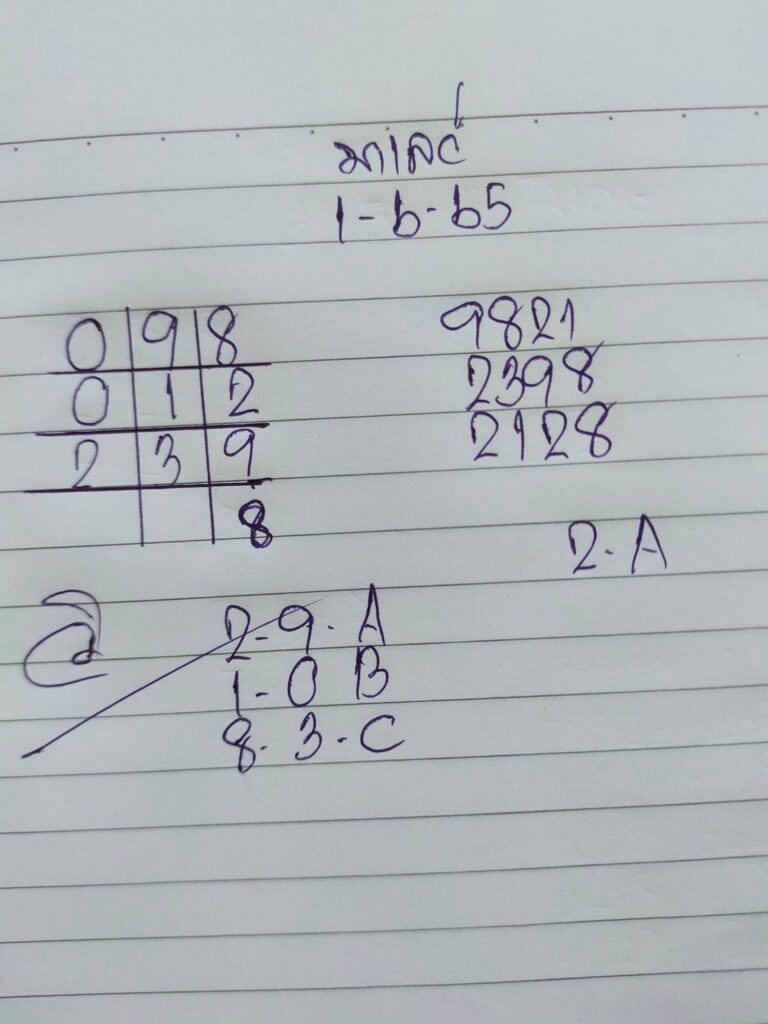 มาเลย์
1-6-65
0 9 8
0 1 2
2 3 9
8
9821
2398
2128
2. A
2-9. A
1-0 B
8. 3. C